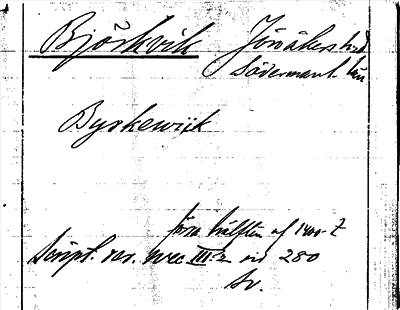 Björkvik Jönåkers hd
Södermanl. län
Byrkewijk
förra hälften af 1400-t
Script. rer. svec III:2 sid 280
Sv.